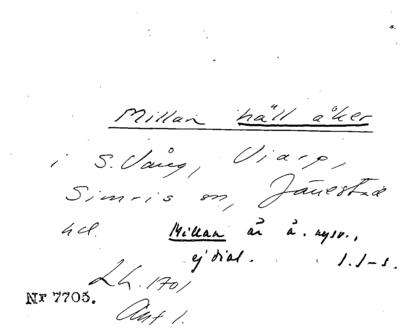 Millan häll åker
i S. Vång, Viarp,
Simris sn, Järrestad
hd.
Millan är å. nysv.,
ej dial. J. J-s.
Lh. 1701
Nr 7703.
Akt 1.